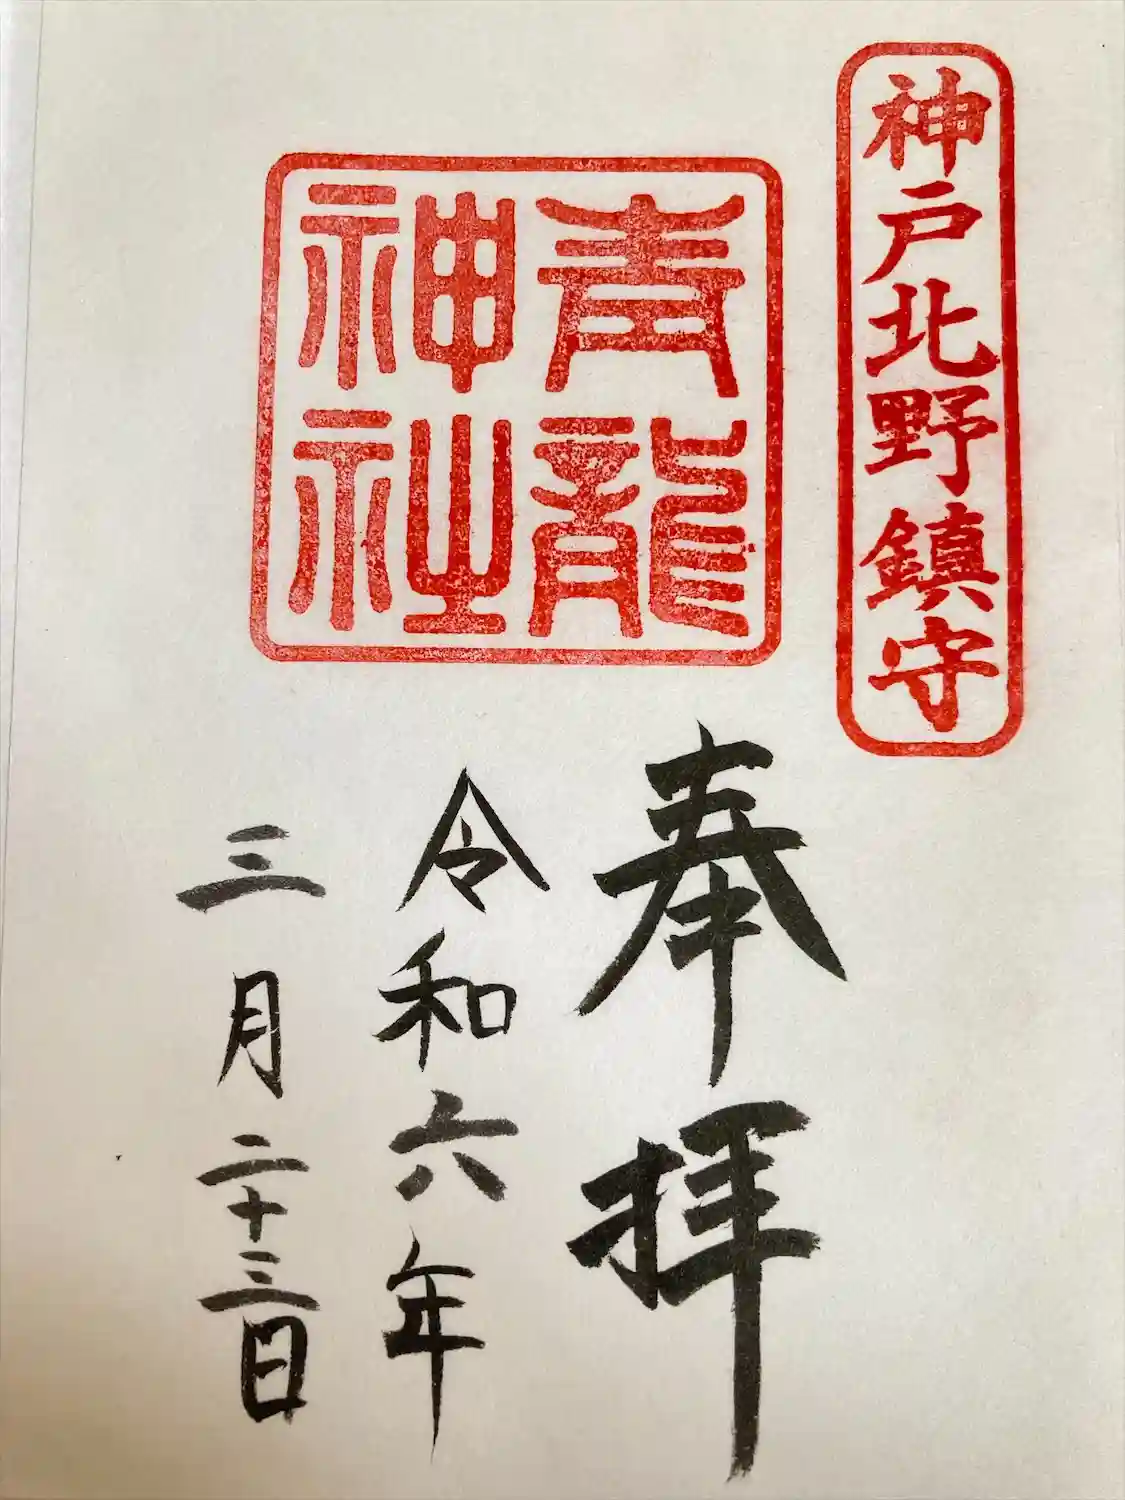 神戸北野鎮守
青龍
神社
奉拝
令和六年
三月二十三日